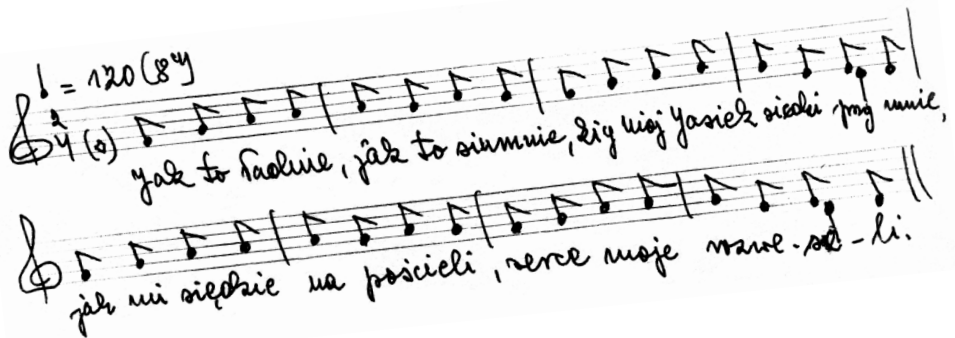 ♩ = 120 (8")
2/4 (0)
Jak to ładnie, jak to sium​nie, kiej mój Jasiek siedzi przy mnie,
jak mi siędzie na pościeli, serce moje rozwe-se-li.